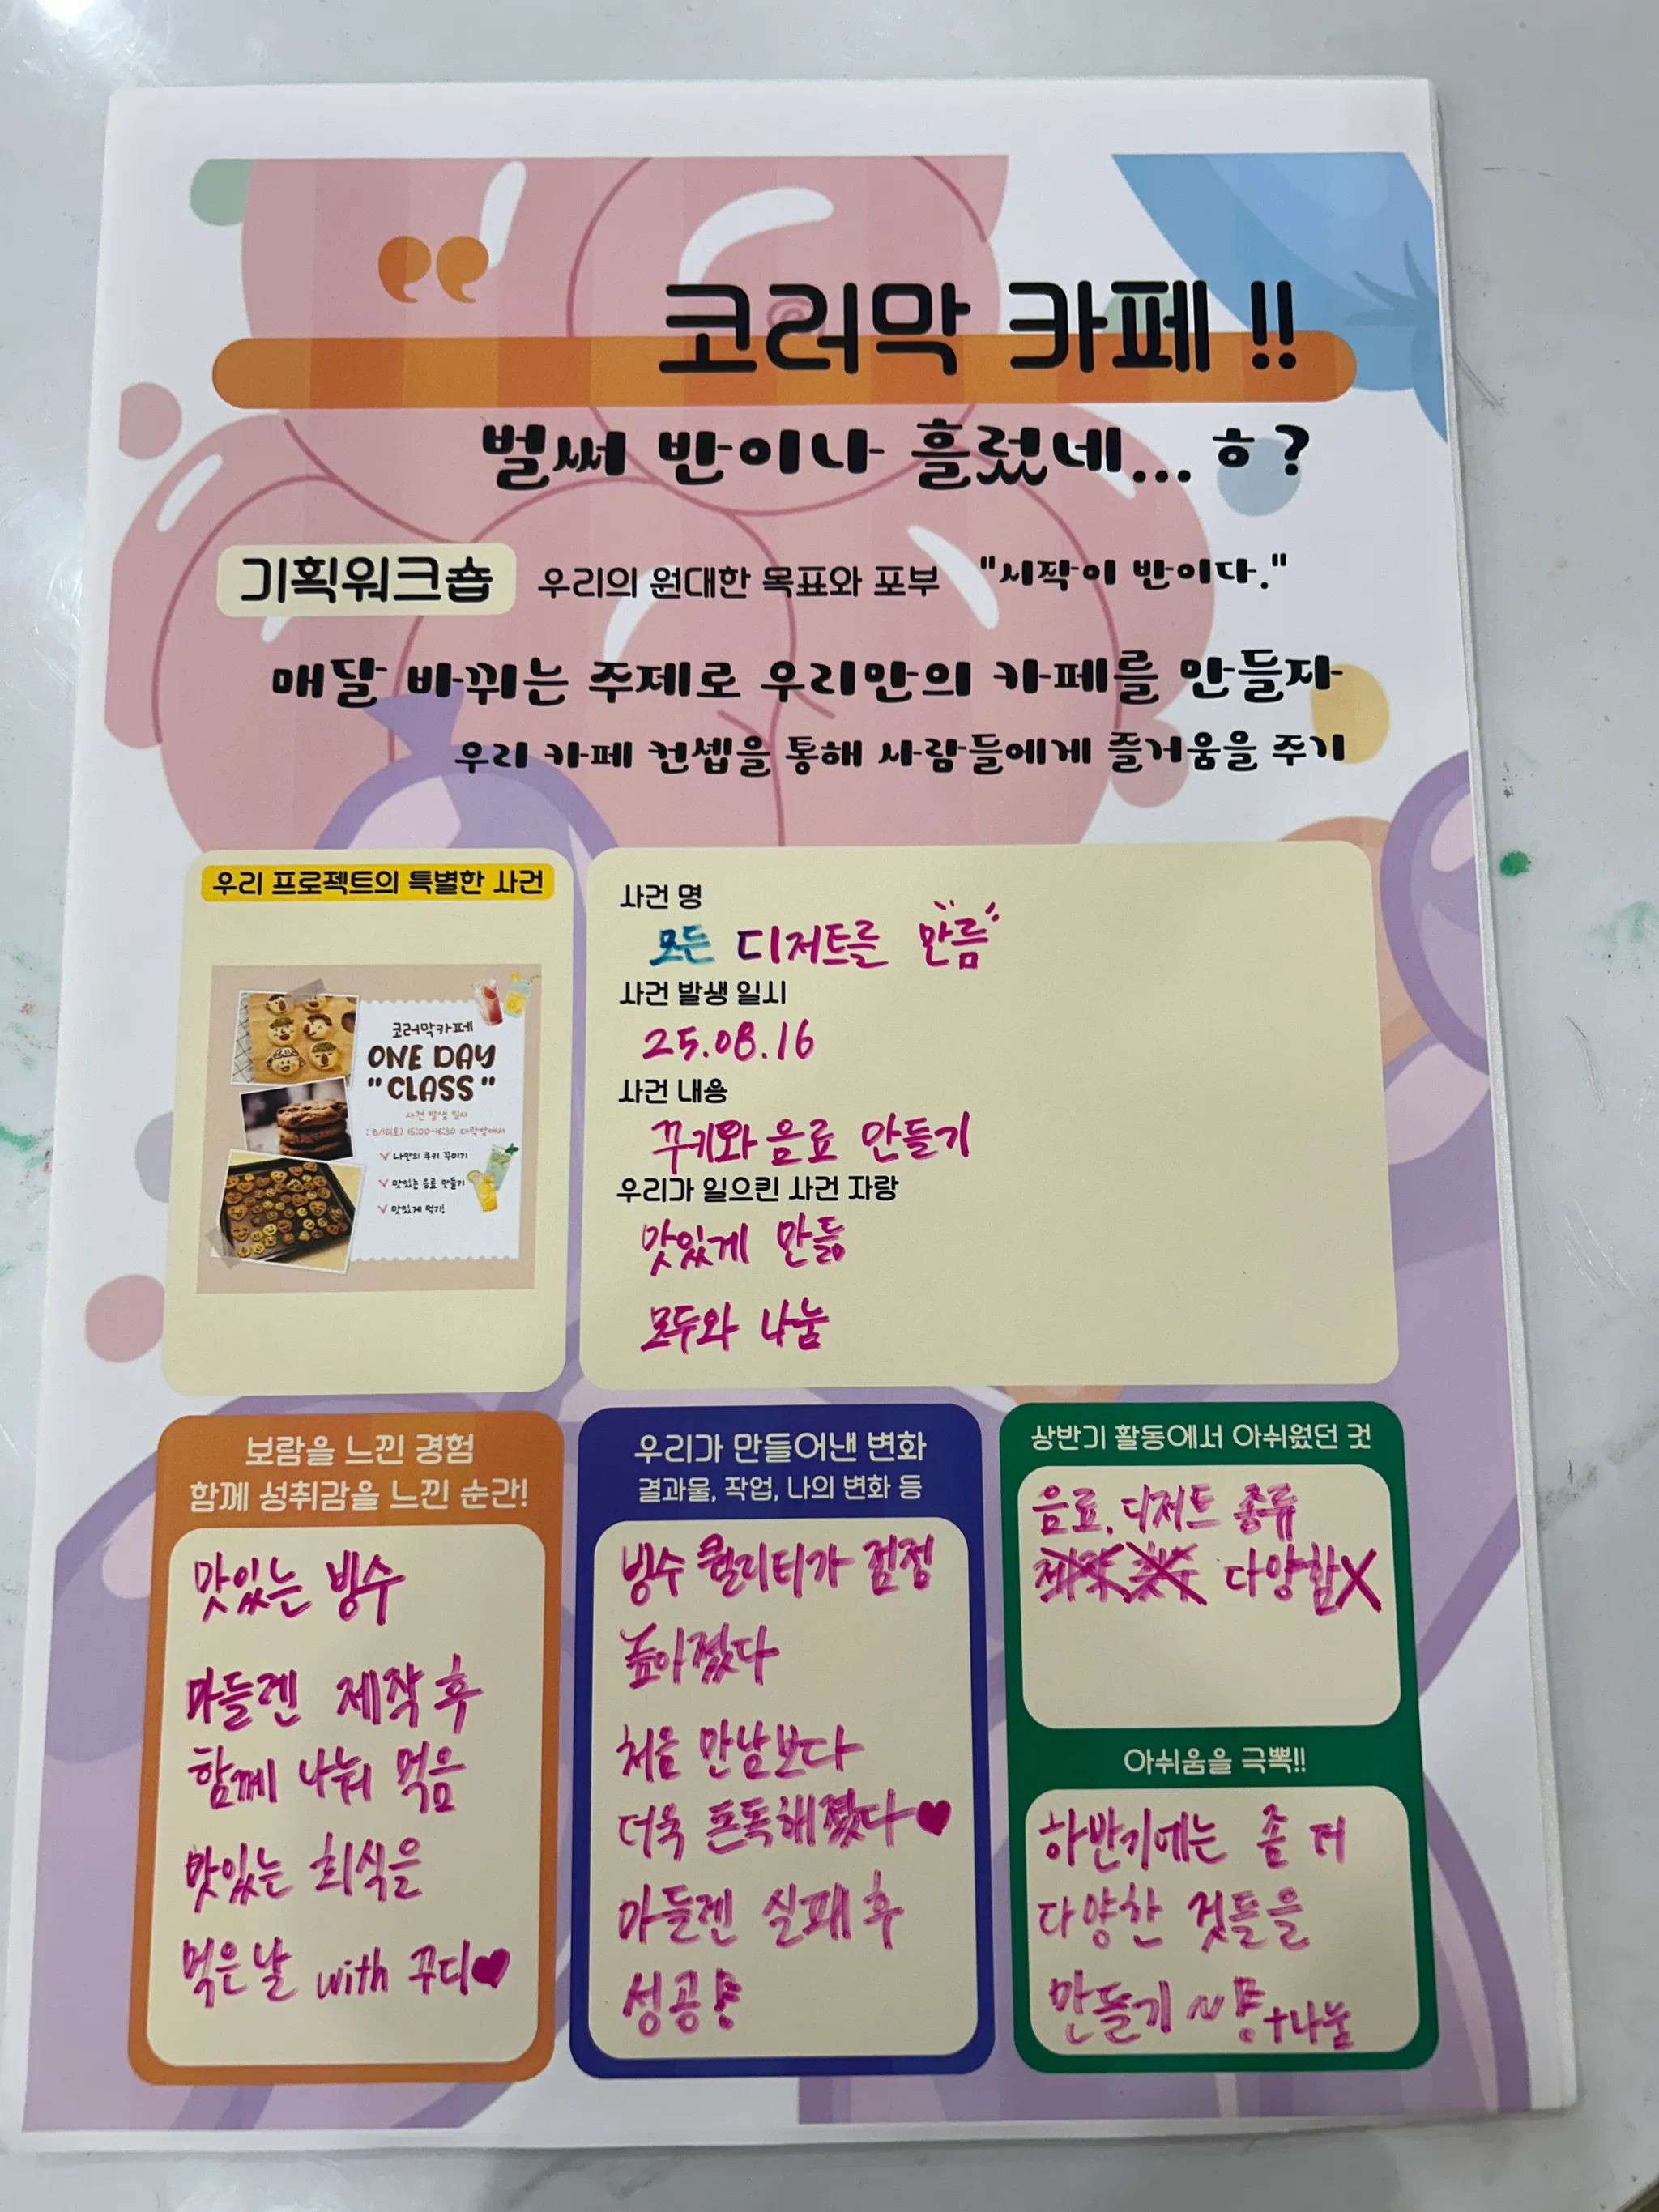 코러막 카페 !!
벌써 반이나 흘렀네... ㅎ?
기획워크숍 우리의 원대한 목표와 포부 "시작이 반이다."
매달 바뀌는 주제로 우리만의 카페를 만들자
우리 카페 컨셉을 통해 사람들에게 즐거움을 주기
우리 프로젝트의 특별한 사건
코러막카페
ONE DAY
"CLASS"
사건 발생 일시
: 8/16(토) 15:00-16:30
나만의 쿠키 꾸미기
맛있는 음료 만들기
맛있게 먹기!
사건 명
모든 디저트를 만듦
사건 발생 일시
25.08.16
사건 내용
꾸키와 음료 만들기
우리가 일으킨 사건 자랑
맛있게 만듦
모두와 나눔
보람을 느낀 경험
함께 성취감을 느낀 순간!
맛있는 빙수
마들렌 제작 후
함께 나눠 먹음
맛있는 회식을
먹은 날 with 꾸디♥
우리가 만들어낸 변화
결과물, 작업, 나의 변화 등
빙수 퀄리티가 점점
높아졌다
처음 만남보다
더욱 돈독해졌다♥
마들렌 실패 후
성공
상반기 활동에서 아쉬웠던 것
음료, 디저트 종류
다양함X
아쉬움을 극뽁!!
하반기에는 좀 더
다양한 것들을
만들기 ~ +나눔